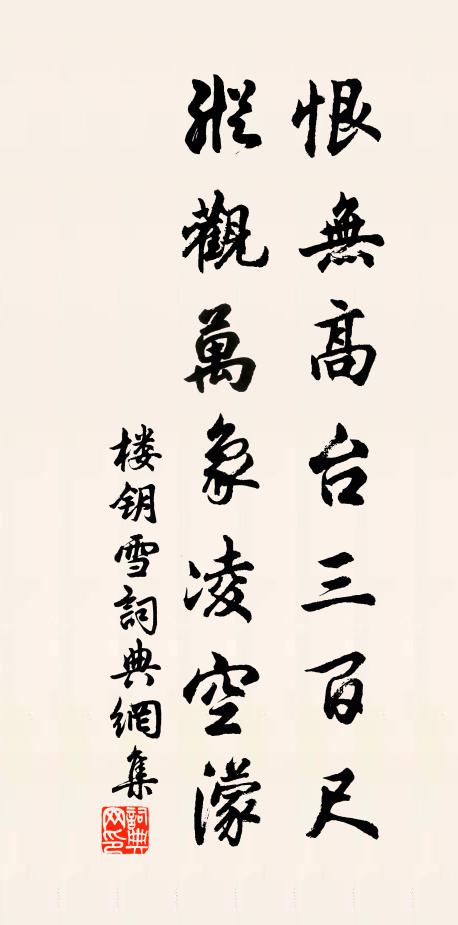 恨無高台三百尺
縱觀萬象凌空濛
楼钥雪詞典網集
詞典網印